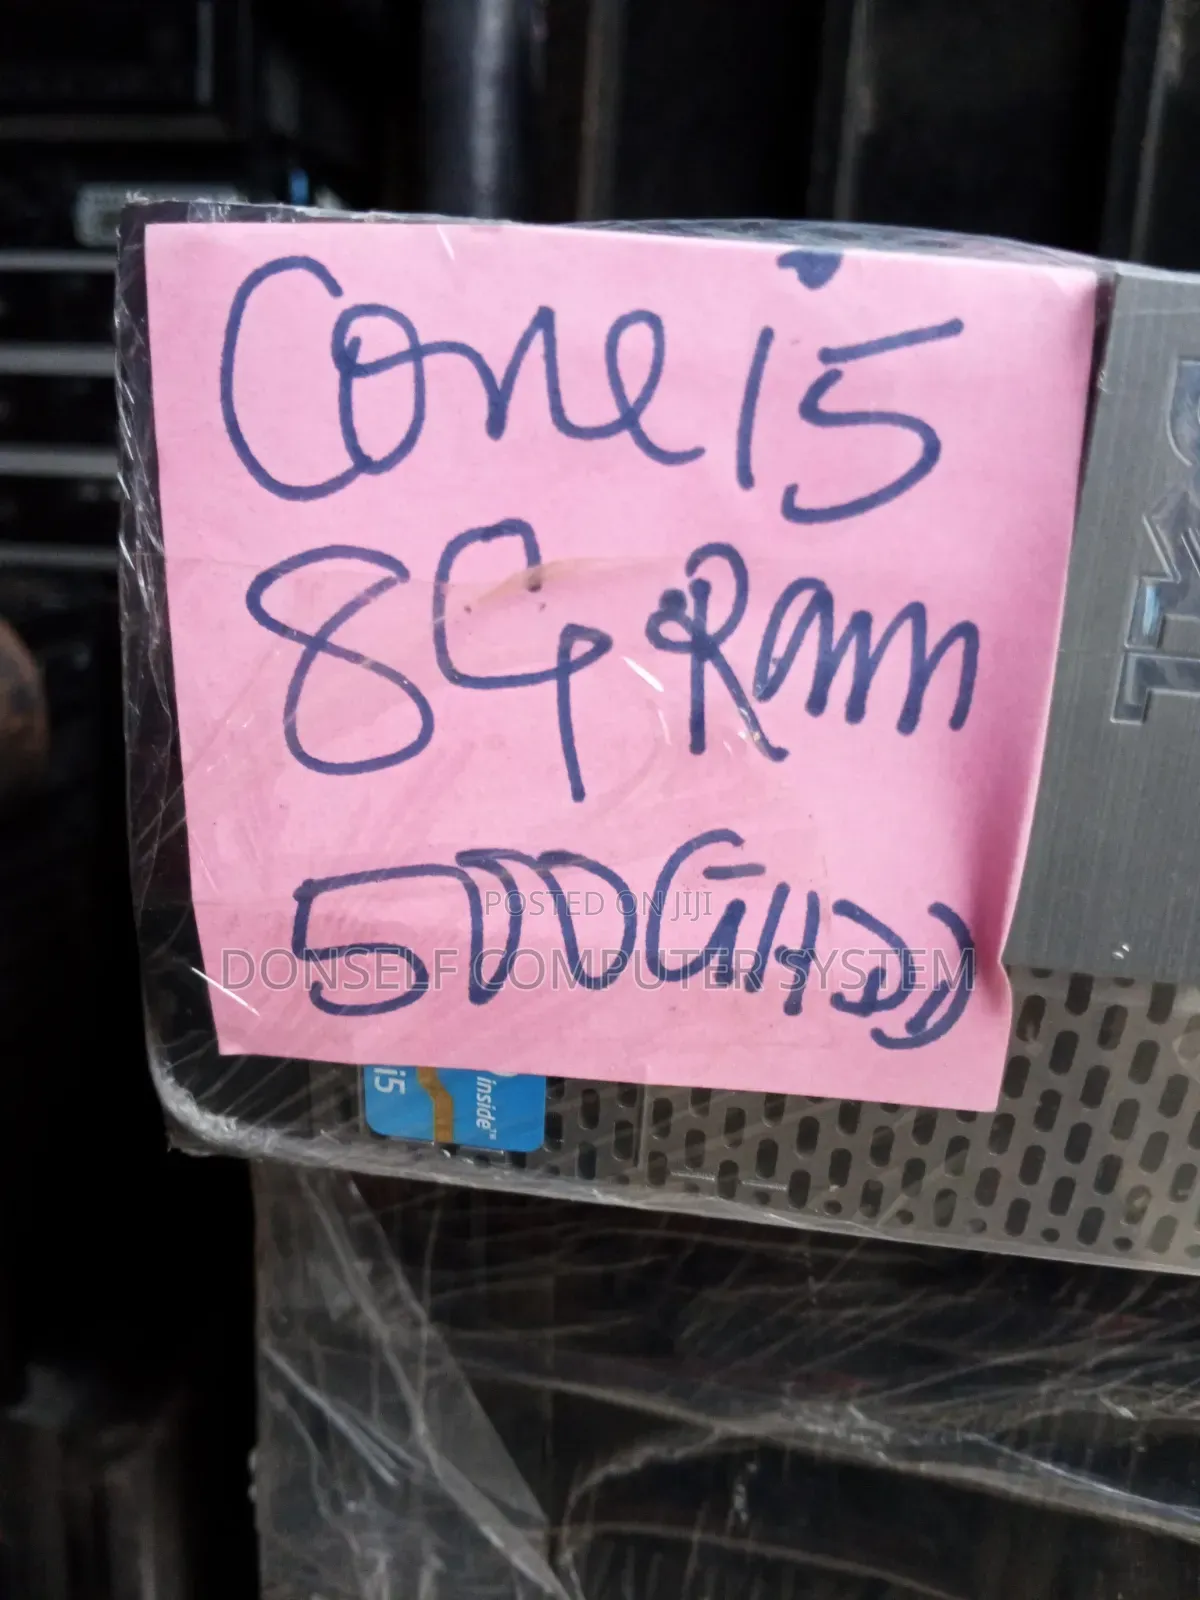 Core i5
8G Ram
500GHDD
POSTED ON JIJI
DONSELF COMPUTER SYSTEM
inside™
i5